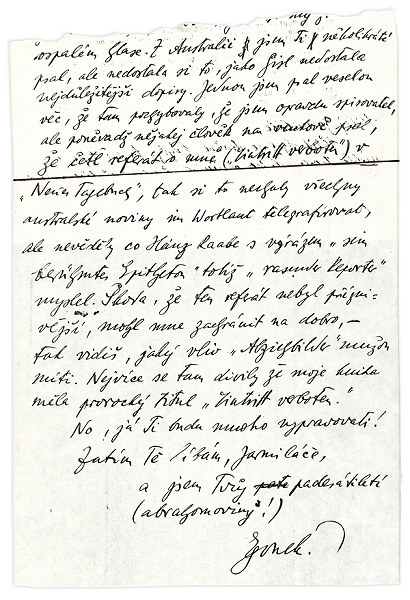 ospalém hlase. Z Australie jsem Ti několikráte
psal, ale nedostala si to, jako Gisl nedostala
nejdůležitější dopisy. Jednou jsem psal veselou
věc, že tam pochybovaly, že jsem opravdu spisovatel,
ale poněvadž nějaký člověk na psal,
že četl referát o mně („Eintritt verboten“) v
„Neuen Tagebuch“, tak si to nechaly všechny
australské noviny im Wortlaut telegrafirovat,
ale nevěděly co Hans Raabe s výrazem „sein
berühmtes Epitheton“ totiž „rasender Reporter“
myslel. Škoda, že ten referát nebyl přízni-
vější, mohl mne zachránit na dobro, –
tak vidíš, jaký vliv „Abziehbilder“ muzou
míti. Nejvíce se tam divily že moje kniha
měla prorocký titul „Eintritt verboten.“
No, já Ti budu mnoho vypravovati!
Zatím Tě líbám, Jarmiláče,
a jsem Tvůj padesátiletý
(abrahamoviny!)
Egonek.